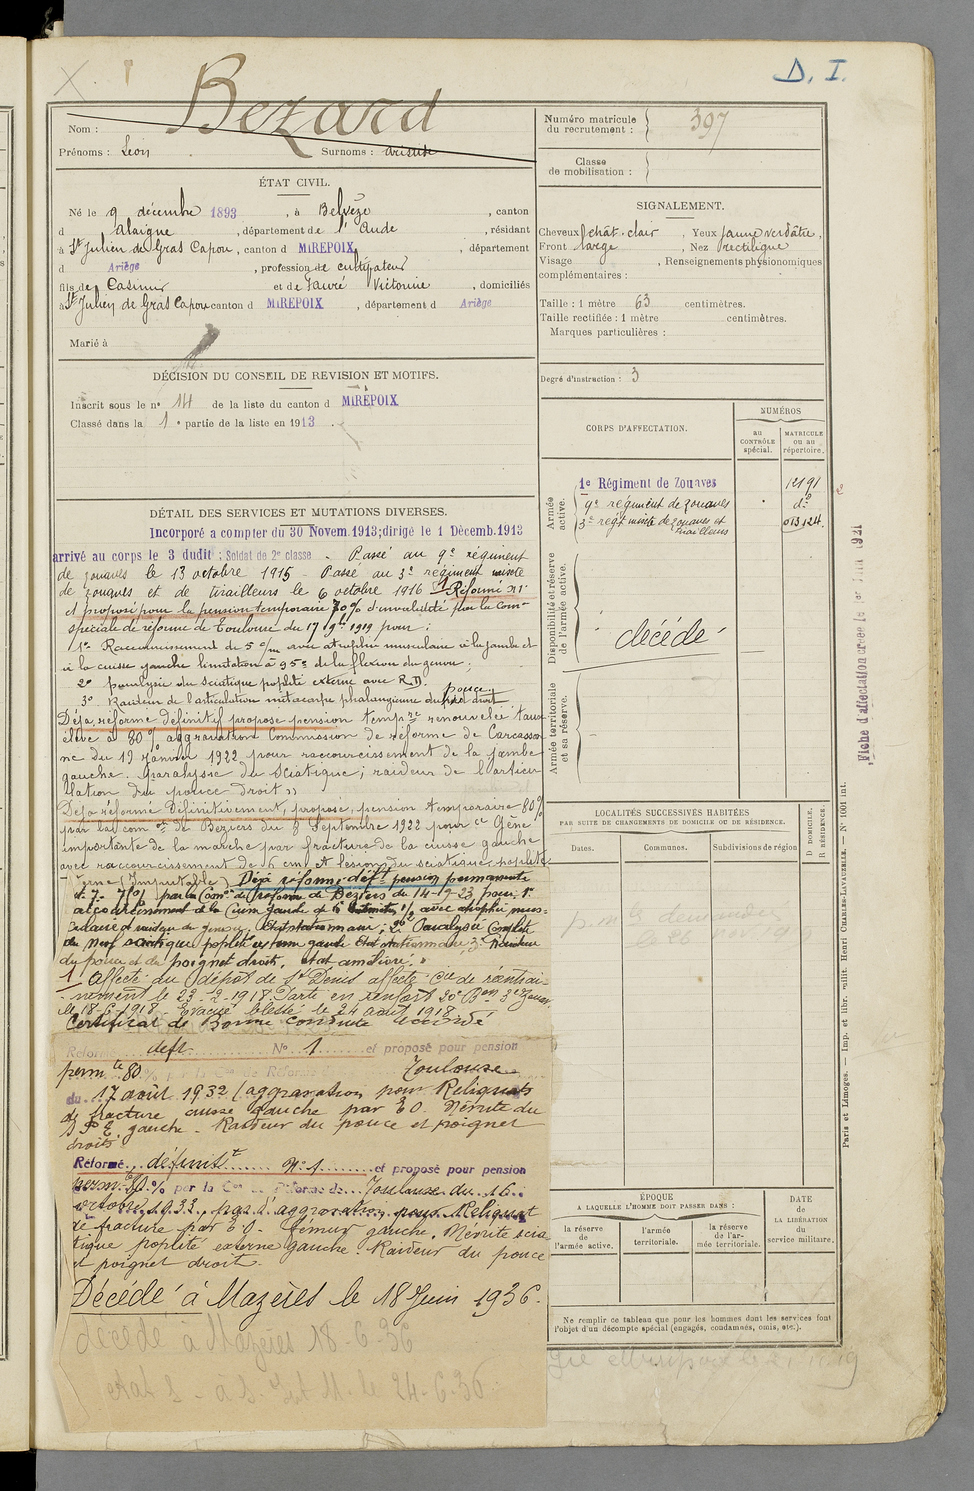 D. I.
Bezard
Nom :
Prénoms : Léon Surnoms :
ÉTAT CIVIL.
Né le 9 décembre 1893, à Belvèze, canton
d Alaigne, département de l'Aude, résidant
à St Julien de Gras Capou, canton d MIREPOIX, département
d Ariège, profession de cultivateur
fils de Casimir et de Fauré Victorine, domiciliés
à St Julien de Gras Capou canton d MIREPOIX, département d Ariège
Marié à
DÉCISION DU CONSEIL DE REVISION ET MOTIFS.
Inscrit sous le n° 14 de la liste du canton d MIREPOIX
Classé dans la 1e partie de la liste en 1913.
DÉTAIL DES SERVICES ET MUTATIONS DIVERSES.
Incorporé a compter du 30 Novem. 1913; dirigé le 1 Décemb. 1913
arrivé au corps le 3 dudit; Soldat de 2e classe. Passé au 9e régiment
de zouaves le 13 octobre 1915 - Passé au 3e régiment mixte
de zouaves et de tirailleurs le 6 octobre 1916 1 Réformé n°1
et proposé pour la pension temporaire 70% d'invalidité par la Comon
spéciale de réforme de Toulouse du 17 9bre 1919 pour :
1° Raccourcissement de 5 c/m avec atrophie musculaire à la jambe et
à la cuisse gauche limitation à 95° de la flexion du genou;
2° paralysie du sciatique poplité externe avec R.D.
3° Raideur de l'articulation métacarpo phalangienne du pouce droit
Déjà réformé définitif proposé pension tempre renouvelée taux
élevé à 80% aggravation Commission de réforme de Carcasson
ne du 19 janvier 1922 pour raccourcissement de la jambe
gauche. Paralysie du Sciatique; raideur de l'articu
lation du pouce droit "
Déjà réformé définitivement, proposé pension temporaire 80%
par la comon de Beziers du 8 Septembre 1922 pour ce Gêne
importante de la marche par fracture de la cuisse gauche
avec raccourcissement de 6 cm et lesion du sciatique poplité
erne (Imputable) Déjà réformé déft pension permanente
par la Comon de réforme de Béziers du 14-9-23 pour 1°
du pouce et du poignet droits, état amélioré.
1 Affecté au dépôt de St Denis affecté Cie de réentrai-
nement le 23-2-1918. Parti en renfort 20e Bon 3e Zouaves
le 18-6-1918. Evacué blessé le 24 août 1918
Certificat de Bonne conduite accordé
Réformé déft N° 1 et proposé pour pension
permte 80% par la Con de Réforme de Toulouse
du 17 août 1932 (aggravation pour Reliquats
de fracture cuisse gauche par E.O. Névrite du
S P E gauche. Raideur du pouce et poignet
droits.
Réformé définitt N° 1 et proposé pour pension
permte 80% par la Con de Réforme de Toulouse du 16
octobre 1933, pas d'aggravation pour Reliquat
de fracture par E.O. fémur gauche. Névrite scia-
tique poplité externe gauche. Raideur du pouce
et poignet droit.
Décédé à Mazères le 18 Juin 1936.
Décédé à Mazères 18-6-36
Numéro matricule du recrutement : 397
Classe de mobilisation :
SIGNALEMENT.
Cheveux chât. clair, Yeux jaune verdâtre,
Front large, Nez rectiligne
Visage, Renseignements physionomiques
complémentaires :
Taille : 1 mètre 63 centimètres.
Taille rectifiée : 1 mètre centimètres.
Marques particulières :
Degré d'instruction : 3
CORPS D'AFFECTATION.
NUMÉROS
au CONTRÔLE spécial.
MATRICULE ou au répertoire.
Armée active.
1e Régiment de Zouaves 12191
9e régiment de zouaves do
3e régt mixte de zouaves et tirailleurs 013124
Disponibilité et réserve de l'armée active.
décédé
Armée territoriale et sa réserve.
LOCALITÉS SUCCESSIVES HABITÉES
PAR SUITE DE CHANGEMENTS DE DOMICILE OU DE RÉSIDENCE.
Dates.
Communes.
Subdivisions de région
D DOMICILE.
R RÉSIDENCE.
ÉPOQUE
A LAQUELLE L'HOMME DOIT PASSER DANS :
la réserve de l'armée active.
l'armée territoriale.
la réserve de l'armée territoriale.
DATE de la LIBÉRATION du service militaire.
Ne remplir ce tableau que pour les hommes dont les services font
l'objet d'un décompte spécial (engagés, condamnés, omis, etc.).
Fiche d'affectation créée le 1er
Paris et Limoges. — Imp. et libr. milit. Henri CHARLES-LAVAUZELLE. — N° 1001 int.